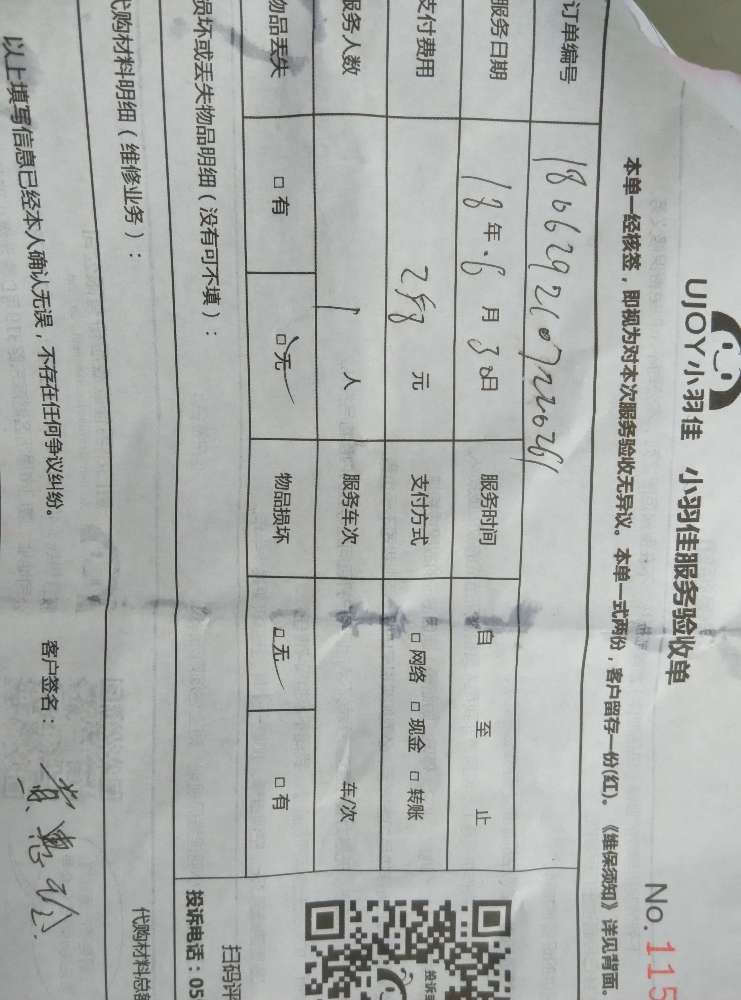 UJOY小羽佳 小羽佳服务验收单
No. 115
本单一经核签，即视为对本次服务验收无异议。本单一式两份，客户留存一份(红)。《维保须知》详见背面。
订单编号
服务日期 18年.6月30日 服务时间 自 至 止
支付费用 258元 支付方式 □网络 □现金 □转账
服务人数 1人 服务车次 车/次
物品丢失 □有 □无 物品损坏 □无 □有
损坏或丢失物品明细（没有可不填）：
扫码评
投诉电话：05
代购材料明细（维修业务）：
代购材料总
以上填写信息已经本人确认无误，不存在任何争议纠纷。 客户签名：